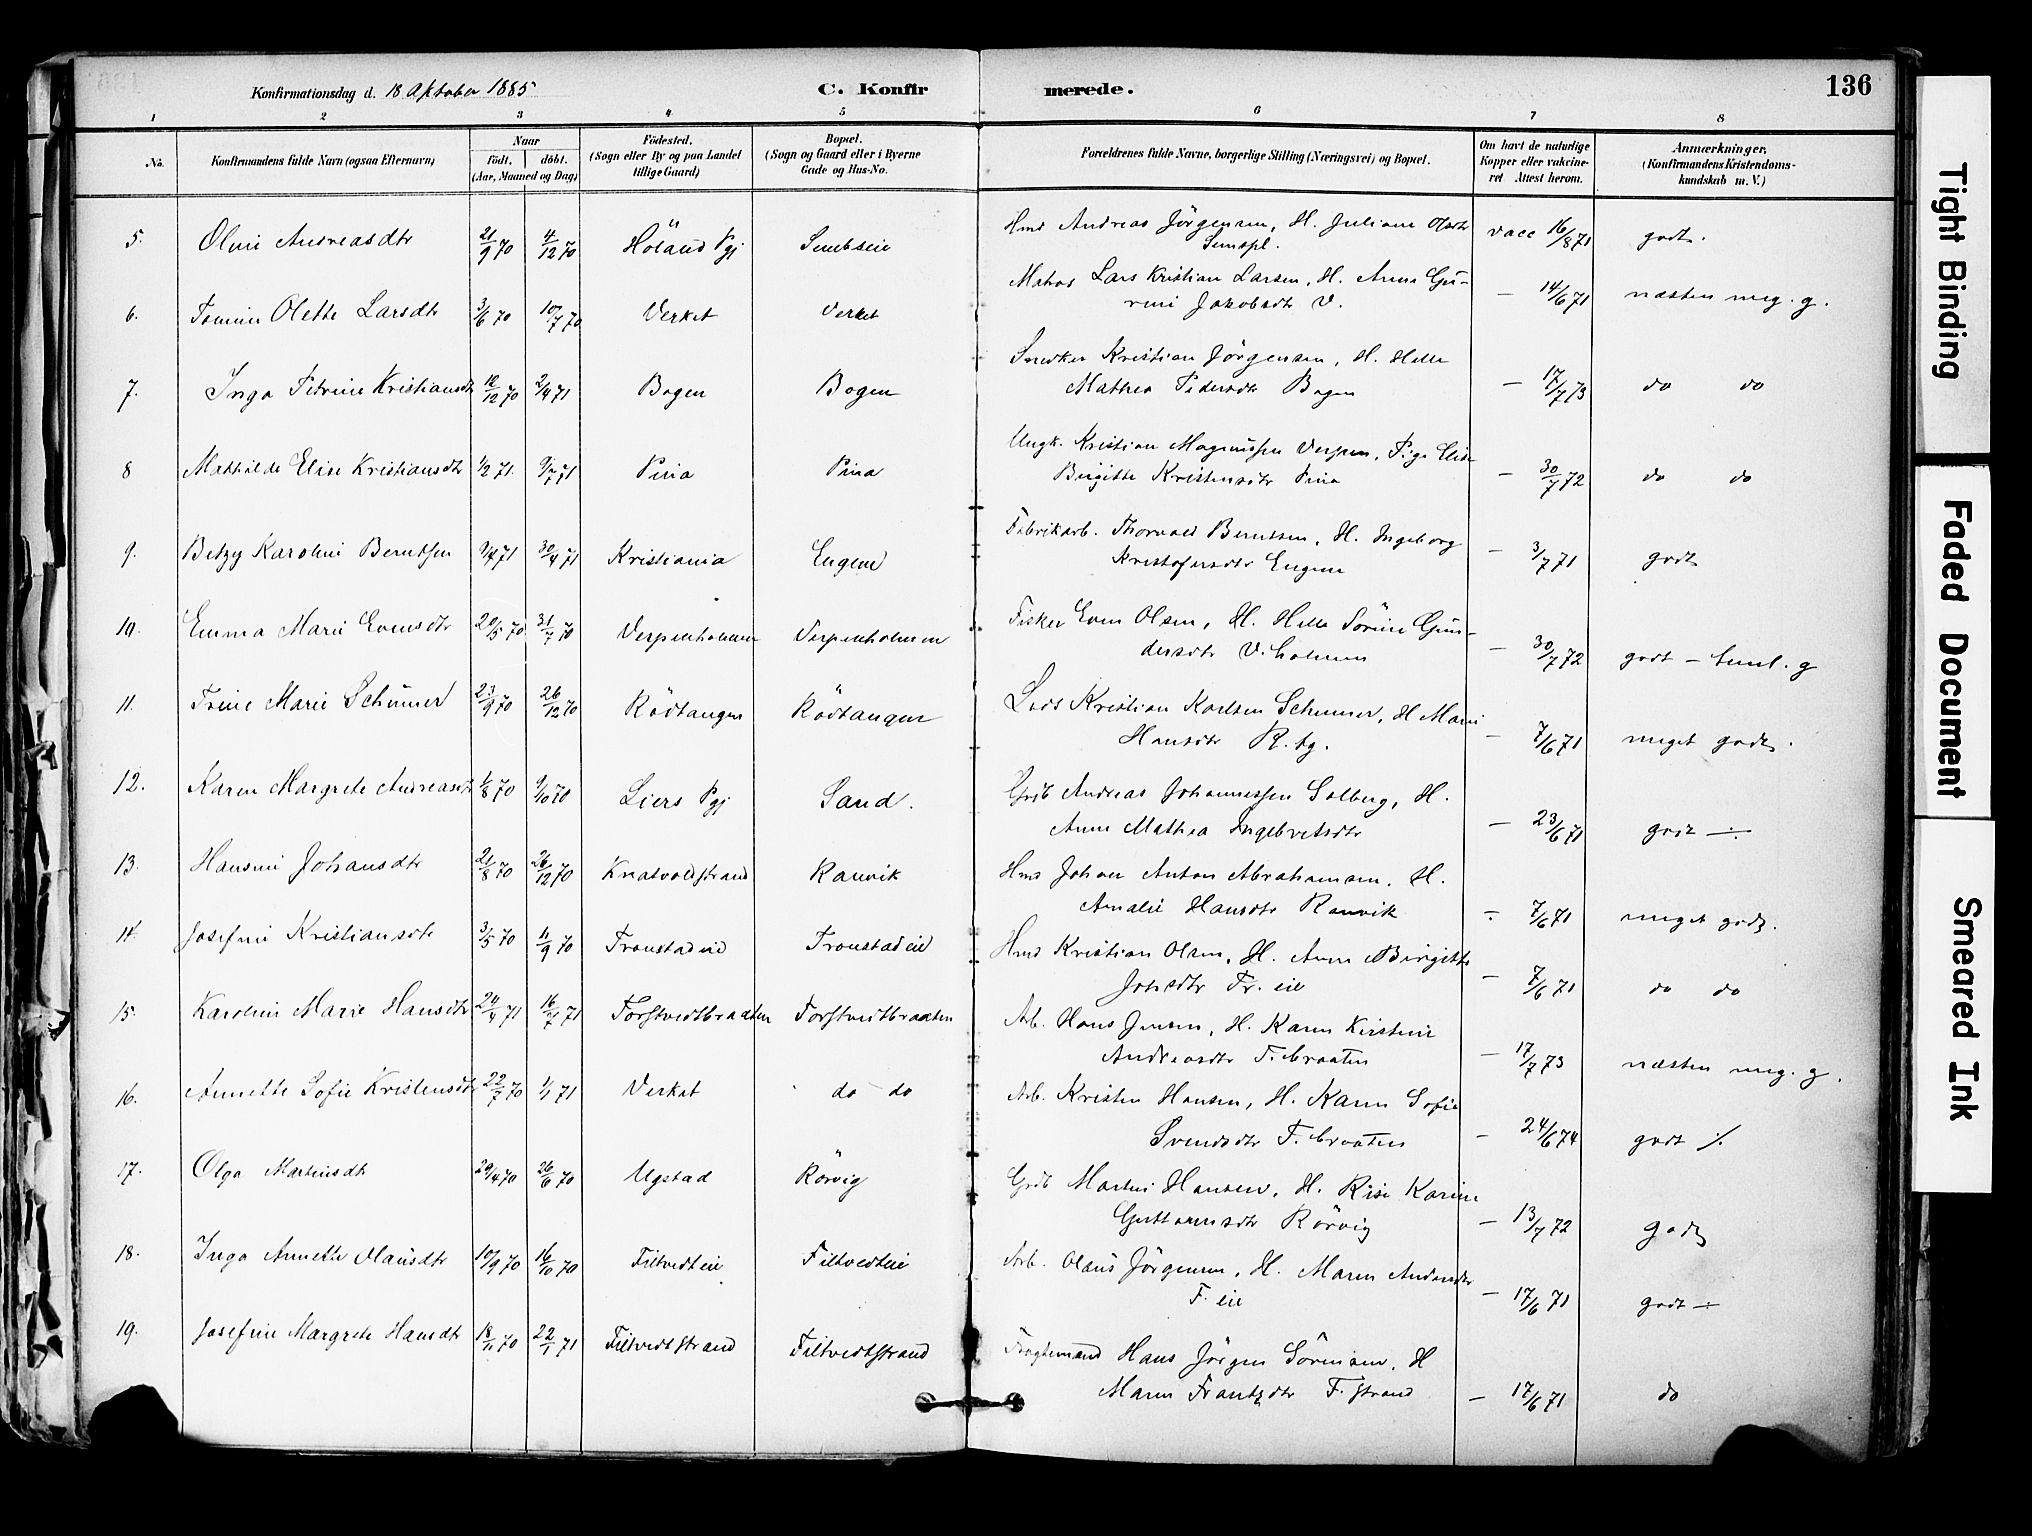 Konfirmationsdag d. 18 Oktober 1885 C. Konfirmerede. 136
1 2 3 4 5 6 7 8
No. Konfirmandens fulde Navn (ogsaa Efternavn) Naar födt. döbt. (Aar, Maaned og Dag) Födested. (Sogn eller By og paa Landet tillige Gaard) Bopæl. (Sogn og Gaard eller i Byerne Gade og Hus-No. Forældrenes fulde Navne, borgerlige Stilling (Næringsvei) og Bopæl. Om havt de naturlige Kopper eller vakcineret Attest herom. Anmærkninger. (Konfirmandens Kristendomskundskab m. V.)
5. Andreasdtr 21/9 70 4/12 70 Höland Pgj Hmd Andreas Jörgensen, H. Juliane vacc 16/8 71 godt.
6. Olette Larsdtr 3/6 70 10/7 70 Verket Verket Matros Lars Kristian Larsen, H. Anna Gu-
rini Jakobsdtr V. — 14/6 71 næsten meg. g.
7. Inga Petrine Kristiansdtr 10/12 70 2/4 71 Bogen Bogen Snedker Kristian Jörgensen, H. Helle
Mathea Pedersdtr Bogen — 17/7 73 do do
8 Mathilde Elise Kristiansdtr 1/2 71. 9/7 71 Pina Pina Ungk. Kristian Magnussen Verpen, Pige Elise
Birgitte Kristensdtr Pina — 30/7 72 do do
9. Betzy Karoline Berntsen 9/4 71 30/4 71 Kristiania Engene Fabrikarb. Thorvald Berntsen, H. Ingeborg
Kristofersdtr Engene — 3/7 71 godt
10. Emma Marie Evensdtr 20/5 70 31/7 70 Verpenholmen Verpenholmen Fisker Even Olsen, H. Helle Sörine Gun-
dersdtr V. holmen — 30/7 72 godt — teml. g
11. Trine Marie Schinner 23/9 70 26/12 70 Rödtangen Rödtangen Lods Kristian Karlsen H Marie
Hansdtr R. tg. — 7/6 71 meget godt.
12. Karen Margrete Andreasdtr 1/8 70 9/10 70 Liers Pgj Sand. Grdb Andreas Johannessen Solberg, H.
Anne Mathea Ingebretsdtr — 23/6 71 godt ÷
13. Hansine Johansdtr 21/8 70 26/12 70 Knatvoldstrand Ramvik Hmd Johan Anton Abrahamsen, H.
Amalie Hansdtr Ramvik — 7/6 71 meget godt.
14. Josefine Kristiansdtr 3/5 70 11/9 70 Tronstadeie Tronstadeie Hmd Kristian Olsen, H. Anne Birgitte
Johsdtr Tr. eie — 7/6 71 do do
15. Karoline Marie Hansdtr 24/4 71 16/7 71 Torstvedtbraaten Torstvedtbraaten Arb. Hans Jensen, H. Karen Kirstine
Andreasdtr T. braaten — 17/7 73 næsten meg. g.
16. Annette Sofie Kristensdtr 22/7 70 1/1 71 Verket do do Arb. Kristen Hansen, H. Karen Sofie
Svendsdtr T. braaten — 24/6 74 godt ÷
17. Olga Martinsdtr 20/4 70 26/6 70 Ugstad Rörvig Grdb Martin Hansen, H. Risi Karine
Guttormsdtr Rörvig — 13/7 72 godt
18. Inga Annette Olausdtr 10/9 70 16/10 70 Filtvedteie Filtvedteie Arb. Olaus Jörgensen, H. Maren Andersdtr
F. eie — 17/6 71 godt ÷
19. Josefine Margrete Hansdtr 18/11 70 22/1 71 Filtvedtstrand Filtvedtstrand Fragtemand Hans Jörgen Sörensen, H
Maren Frantzdtr F. strand — 17/6 71 do
Tight Binding
Faded Document
Smeared Ink